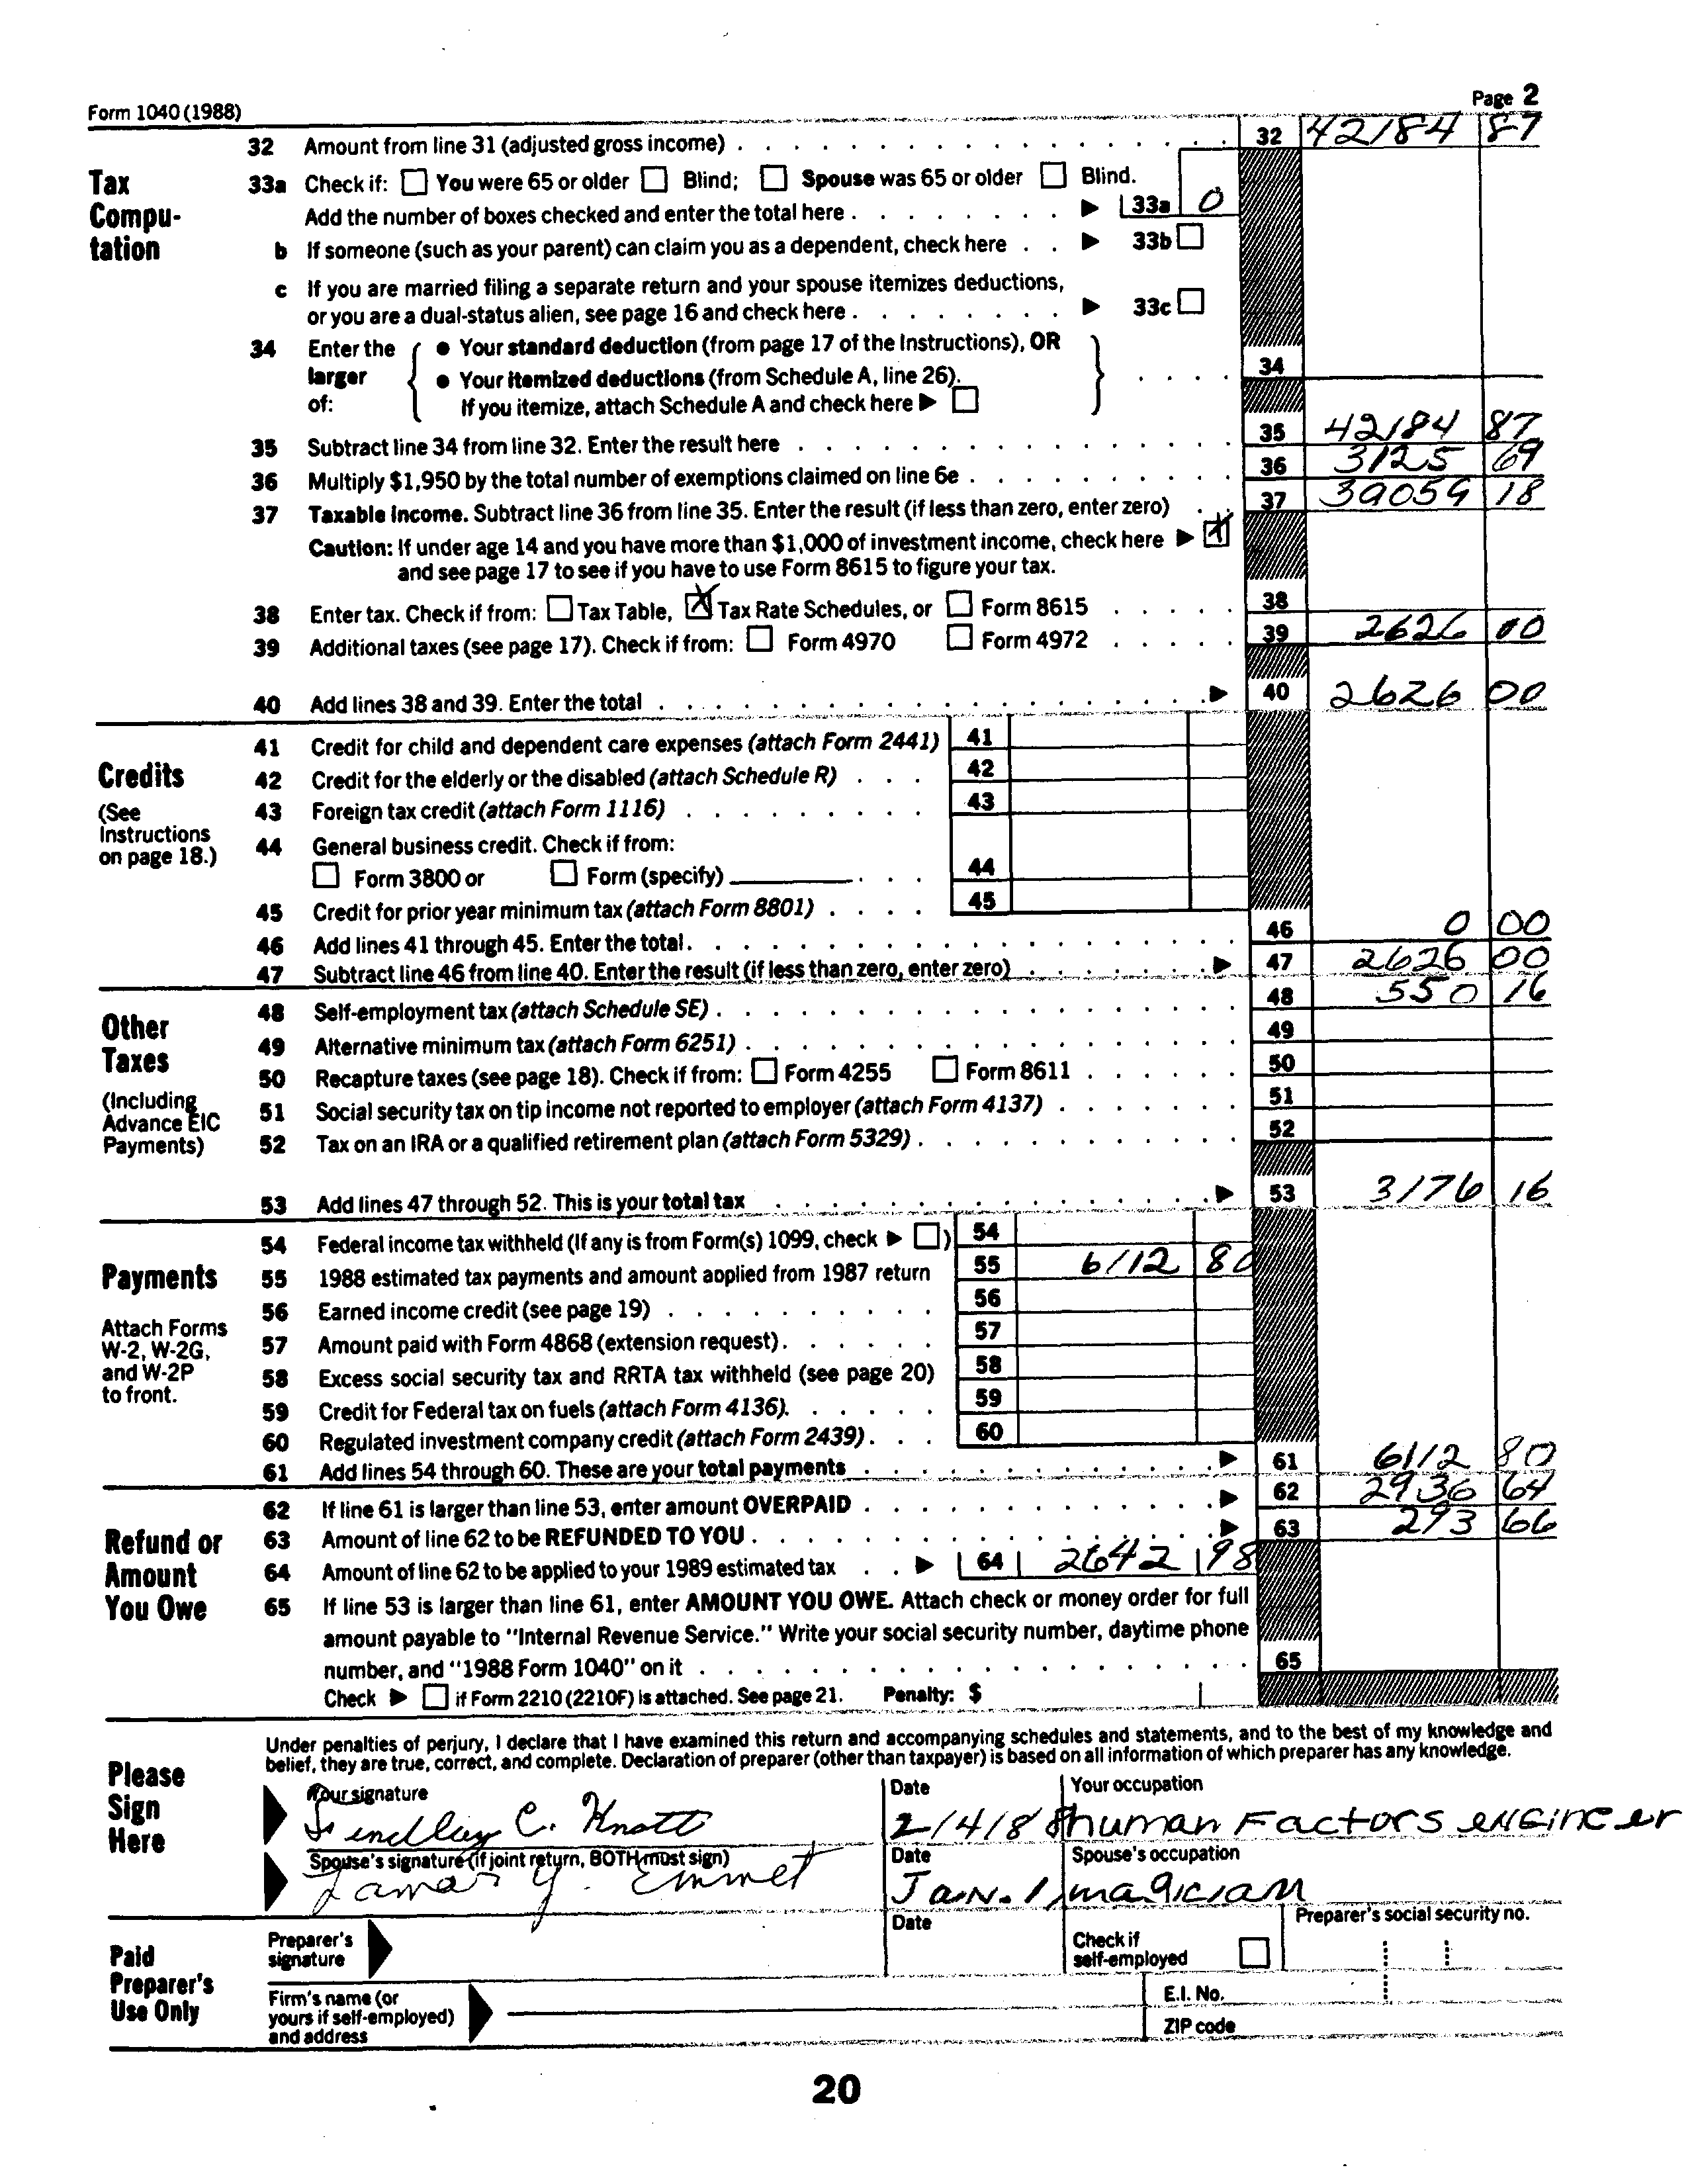 Form 1040 (1988) Page 2
32 Amount from line 31 (adjusted gross income) 32 42184 87
Tax Compu- tation
33a Check if: You were 65 or older Blind; Spouse was 65 or older Blind.
Add the number of boxes checked and enter the total here 33a 0
b If someone (such as your parent) can claim you as a dependent, check here 33b
c If you are married filing a separate return and your spouse itemizes deductions,
or you are a dual-status alien, see page 16 and check here 33c
34 Enter the larger of:
• Your standard deduction (from page 17 of the Instructions), OR
• Your itemized deductions (from Schedule A, line 26). 34
If you itemize, attach Schedule A and check here
35 Subtract line 34 from line 32. Enter the result here 35 42184 87
36 Multiply $1,950 by the total number of exemptions claimed on line 6e 36 3125 69
37 Taxable Income. Subtract line 36 from line 35. Enter the result (if less than zero, enter zero) 37 39059 18
Caution: If under age 14 and you have more than $1,000 of investment income, check here X
and see page 17 to see if you have to use Form 8615 to figure your tax.
38 Enter tax. Check if from: Tax Table, X Tax Rate Schedules, or Form 8615 38
39 Additional taxes (see page 17). Check if from: Form 4970 Form 4972 39 2626 00
40 Add lines 38 and 39. Enter the total 40 2626 00
Credits
(See Instructions on page 18.)
41 Credit for child and dependent care expenses (attach Form 2441) 41
42 Credit for the elderly or the disabled (attach Schedule R) 42
43 Foreign tax credit (attach Form 1116) 43
44 General business credit. Check if from:
Form 3800 or Form (specify) 44
45 Credit for prior year minimum tax (attach Form 8801) 45
46 Add lines 41 through 45. Enter the total 46 0 00
47 Subtract line 46 from line 40. Enter the result (if less than zero, enter zero) 47 2626 00
Other Taxes
(Including Advance EIC Payments)
48 Self-employment tax (attach Schedule SE) 48 550 16
49 Alternative minimum tax (attach Form 6251) 49
50 Recapture taxes (see page 18). Check if from: Form 4255 Form 8611 50
51 Social security tax on tip income not reported to employer (attach Form 4137) 51
52 Tax on an IRA or a qualified retirement plan (attach Form 5329) 52
53 Add lines 47 through 52. This is your total tax 53 3176 16
Payments
Attach Forms W-2, W-2G, and W-2P to front.
54 Federal income tax withheld (If any is from Form(s) 1099, check ) 54
55 1988 estimated tax payments and amount applied from 1987 return 55 6112 80
56 Earned income credit (see page 19) 56
57 Amount paid with Form 4868 (extension request) 57
58 Excess social security tax and RRTA tax withheld (see page 20) 58
59 Credit for Federal tax on fuels (attach Form 4136) 59
60 Regulated investment company credit (attach Form 2439) 60
61 Add lines 54 through 60. These are your total payments 61 6112 80
Refund or Amount You Owe
62 If line 61 is larger than line 53, enter amount OVERPAID 62 2936 64
63 Amount of line 62 to be REFUNDED TO YOU 63 293 66
64 Amount of line 62 to be applied to your 1989 estimated tax 64 2642 98
65 If line 53 is larger than line 61, enter AMOUNT YOU OWE. Attach check or money order for full
amount payable to "Internal Revenue Service." Write your social security number, daytime phone
number, and "1988 Form 1040" on it 65
Check if Form 2210 (2210F) is attached. See page 21. Penalty: $
Please Sign Here
Under penalties of perjury, I declare that I have examined this return and accompanying schedules and statements, and to the best of my knowledge and
belief, they are true, correct, and complete. Declaration of preparer (other than taxpayer) is based on all information of which preparer has any knowledge.
Your signature Date Your occupation
C. Knott 2/4/8 human Factors engineer
Spouse's signature (if joint return, BOTH must sign) Date Spouse's occupation
Lamar Y. Emmet Jan. 1 magician
Paid Preparer's Use Only
Preparer's signature Date Check if self-employed Preparer's social security no.
Firm's name (or yours if self-employed) and address E.I. No.
ZIP code
20